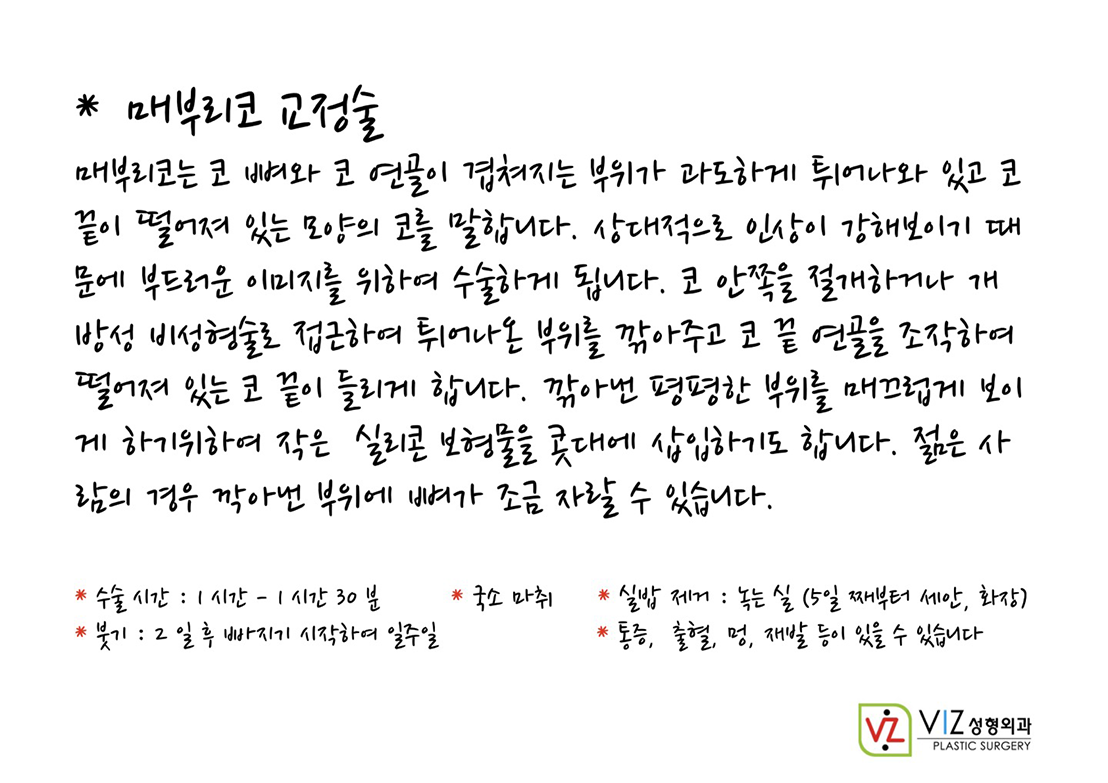 * 매부리코 교정술
매부리코는 코 뼈와 코 연골이 겹쳐지는 부위가 과도하게 튀어나와 있고 코
끝이 떨어져 있는 모양의 코를 말합니다. 상대적으로 인상이 강해보이기 때
문에 부드러운 이미지를 위하여 수술하게 됩니다. 코 안쪽을 절개하거나 개
방성 비성형술로 접근하여 튀어나온 부위를 깎아주고 코 끝 연골을 조작하여
떨어져 있는 코 끝이 들리게 합니다. 깎아낸 평평한 부위를 매끄럽게 보이
게 하기위하여 작은 실리콘 보형물을 콧대에 삽입하기도 합니다. 젊은 사
람의 경우 깍아낸 부위에 뼈가 조금 자랄 수 있습니다.
* 수술 시간 : 1 시간 - 1 시간 30 분 * 국소 마취 * 실밥 제거 : 녹는 실 (5일 째부터 세안, 화장)
* 붓기 : 2 일 후 빠지기 시작하여 일주일 * 통증, 출혈, 멍, 재발 등이 있을 수 있습니다
VIZ VIZ 성형외과
PLASTIC SURGERY